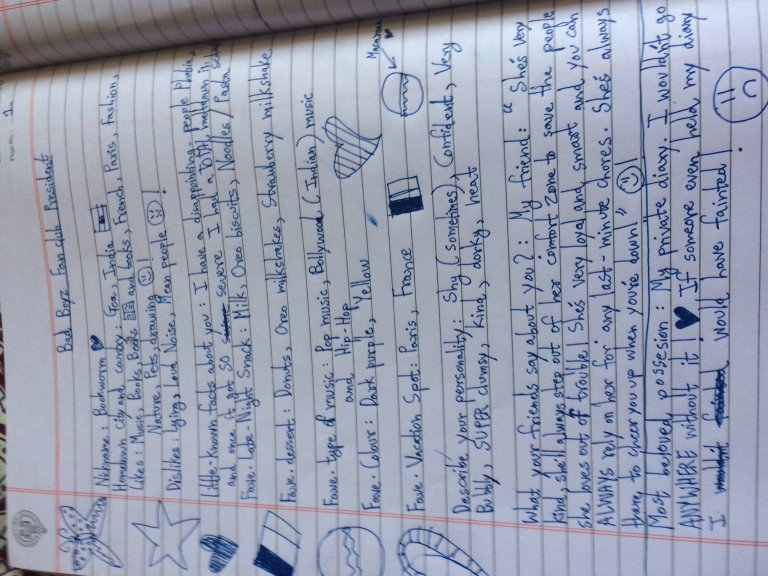 Page No.: 1
Bad Boyz Fan club President
Nickname: Bookworm
Hometown City and country: Goa, India
Likes: Music, Books, Books and books, French, Paris, Fashion,
Nature, Pets, drawing !
Dislikes: Lying, Loud Noise, Mean people !
Little-known facts about you: I have a disappointing-people Phobia,
and once it got SO severe I had a meltdown in school
Fave. Late Night Snack: Milk, Oreo biscuits, Noodles/Pasta
Fave. dessert: Donuts, Oreo milkshakes, Strawberry milkshake
Fave. type of music: Pop music, Bollywood (Indian) music
and Hip-Hop
Fave. Colour: Dark purple, Yellow
Macaroon
Fave. Vacation Spot: Paris, France
Describe your personality: Shy (sometimes), Confident, Very
Bubbly, SUPER clumsy, Kind, dorky, neat
What your friends say about you?: My friend: "She's very
kind, she'll always step out of her comfort zone to save the people
she loves out of trouble! She's very loyal and smart and you can
ALWAYS rely on her for any last-minute chores. She's always
there to cheer you up when you're down" !
Most beloved possesion: My private diary. I wouldn't go
ANYWHERE without it! If someone even held my diary
I would have fainted!